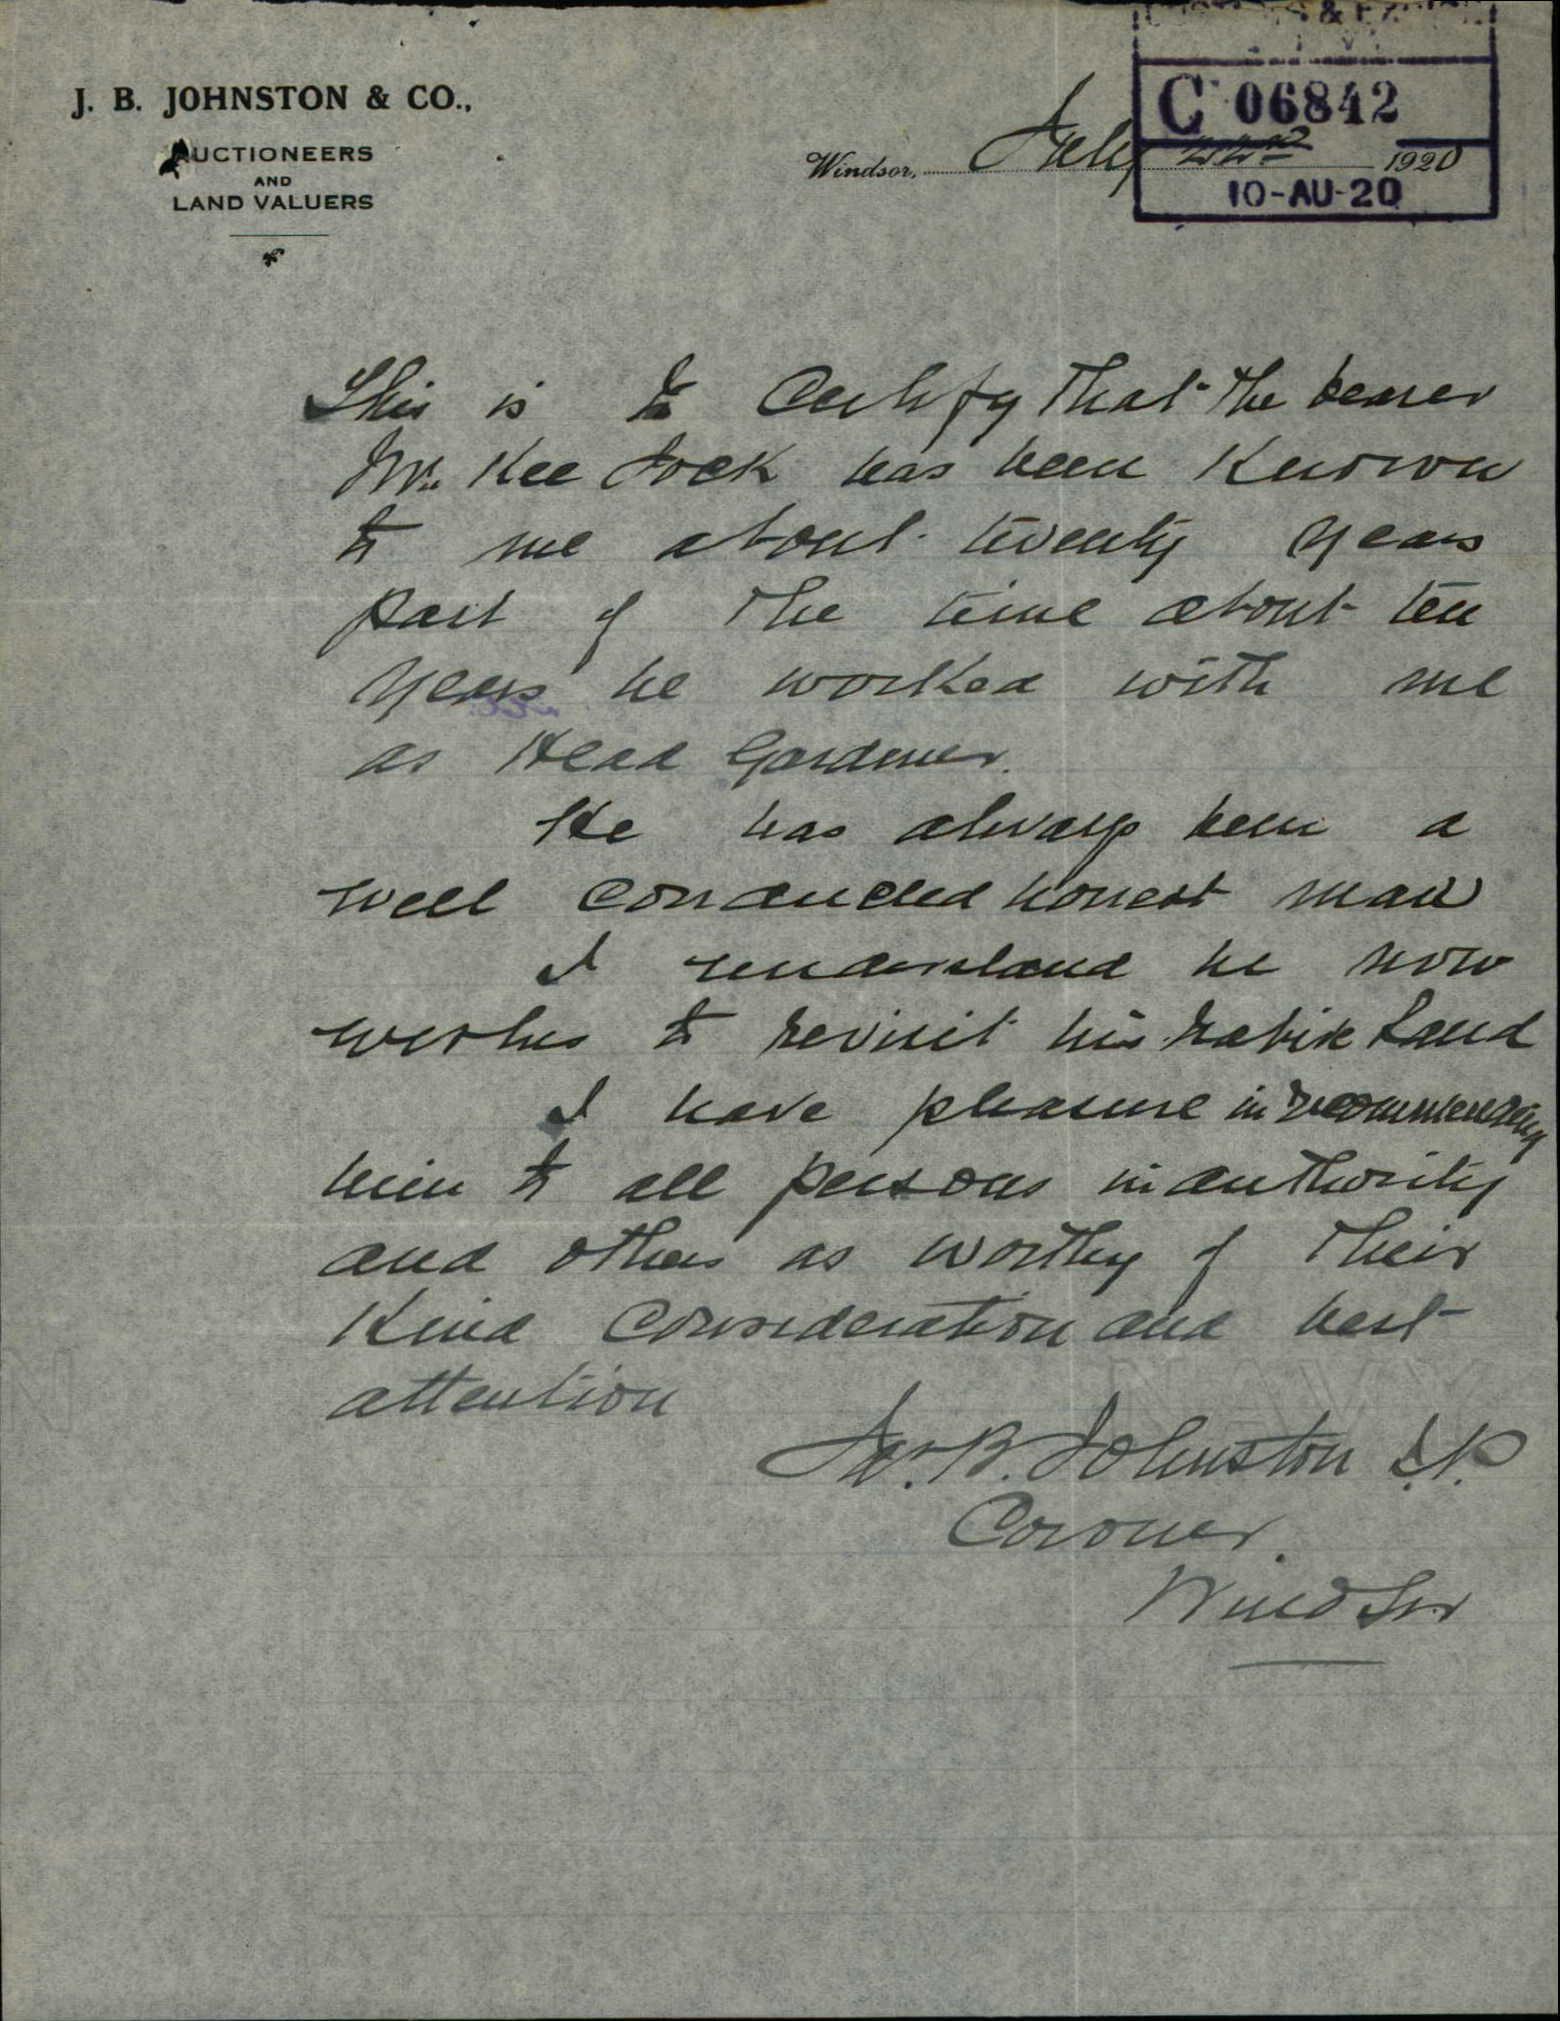 CUSTOMS & EXCISE
C 06842
10-AU-20
J. B. JOHNSTON & CO.,
AUCTIONEERS
AND
LAND VALUERS
Windsor, July 22nd 1920
This is to Certify that the bearer
Mr. Kee Jock has been known
to me about twenty years
part of the time about ten
years he worked with me
as Head Gardener.
He has always been a
well conducted honest man
I understand he now
wishes to revisit his native Land
I have pleasure in recommending
him to all persons in authority
and others as worthy of their
kind consideration and best
attention
Jno. B. Johnston J.P.
Coroner.
Windsor